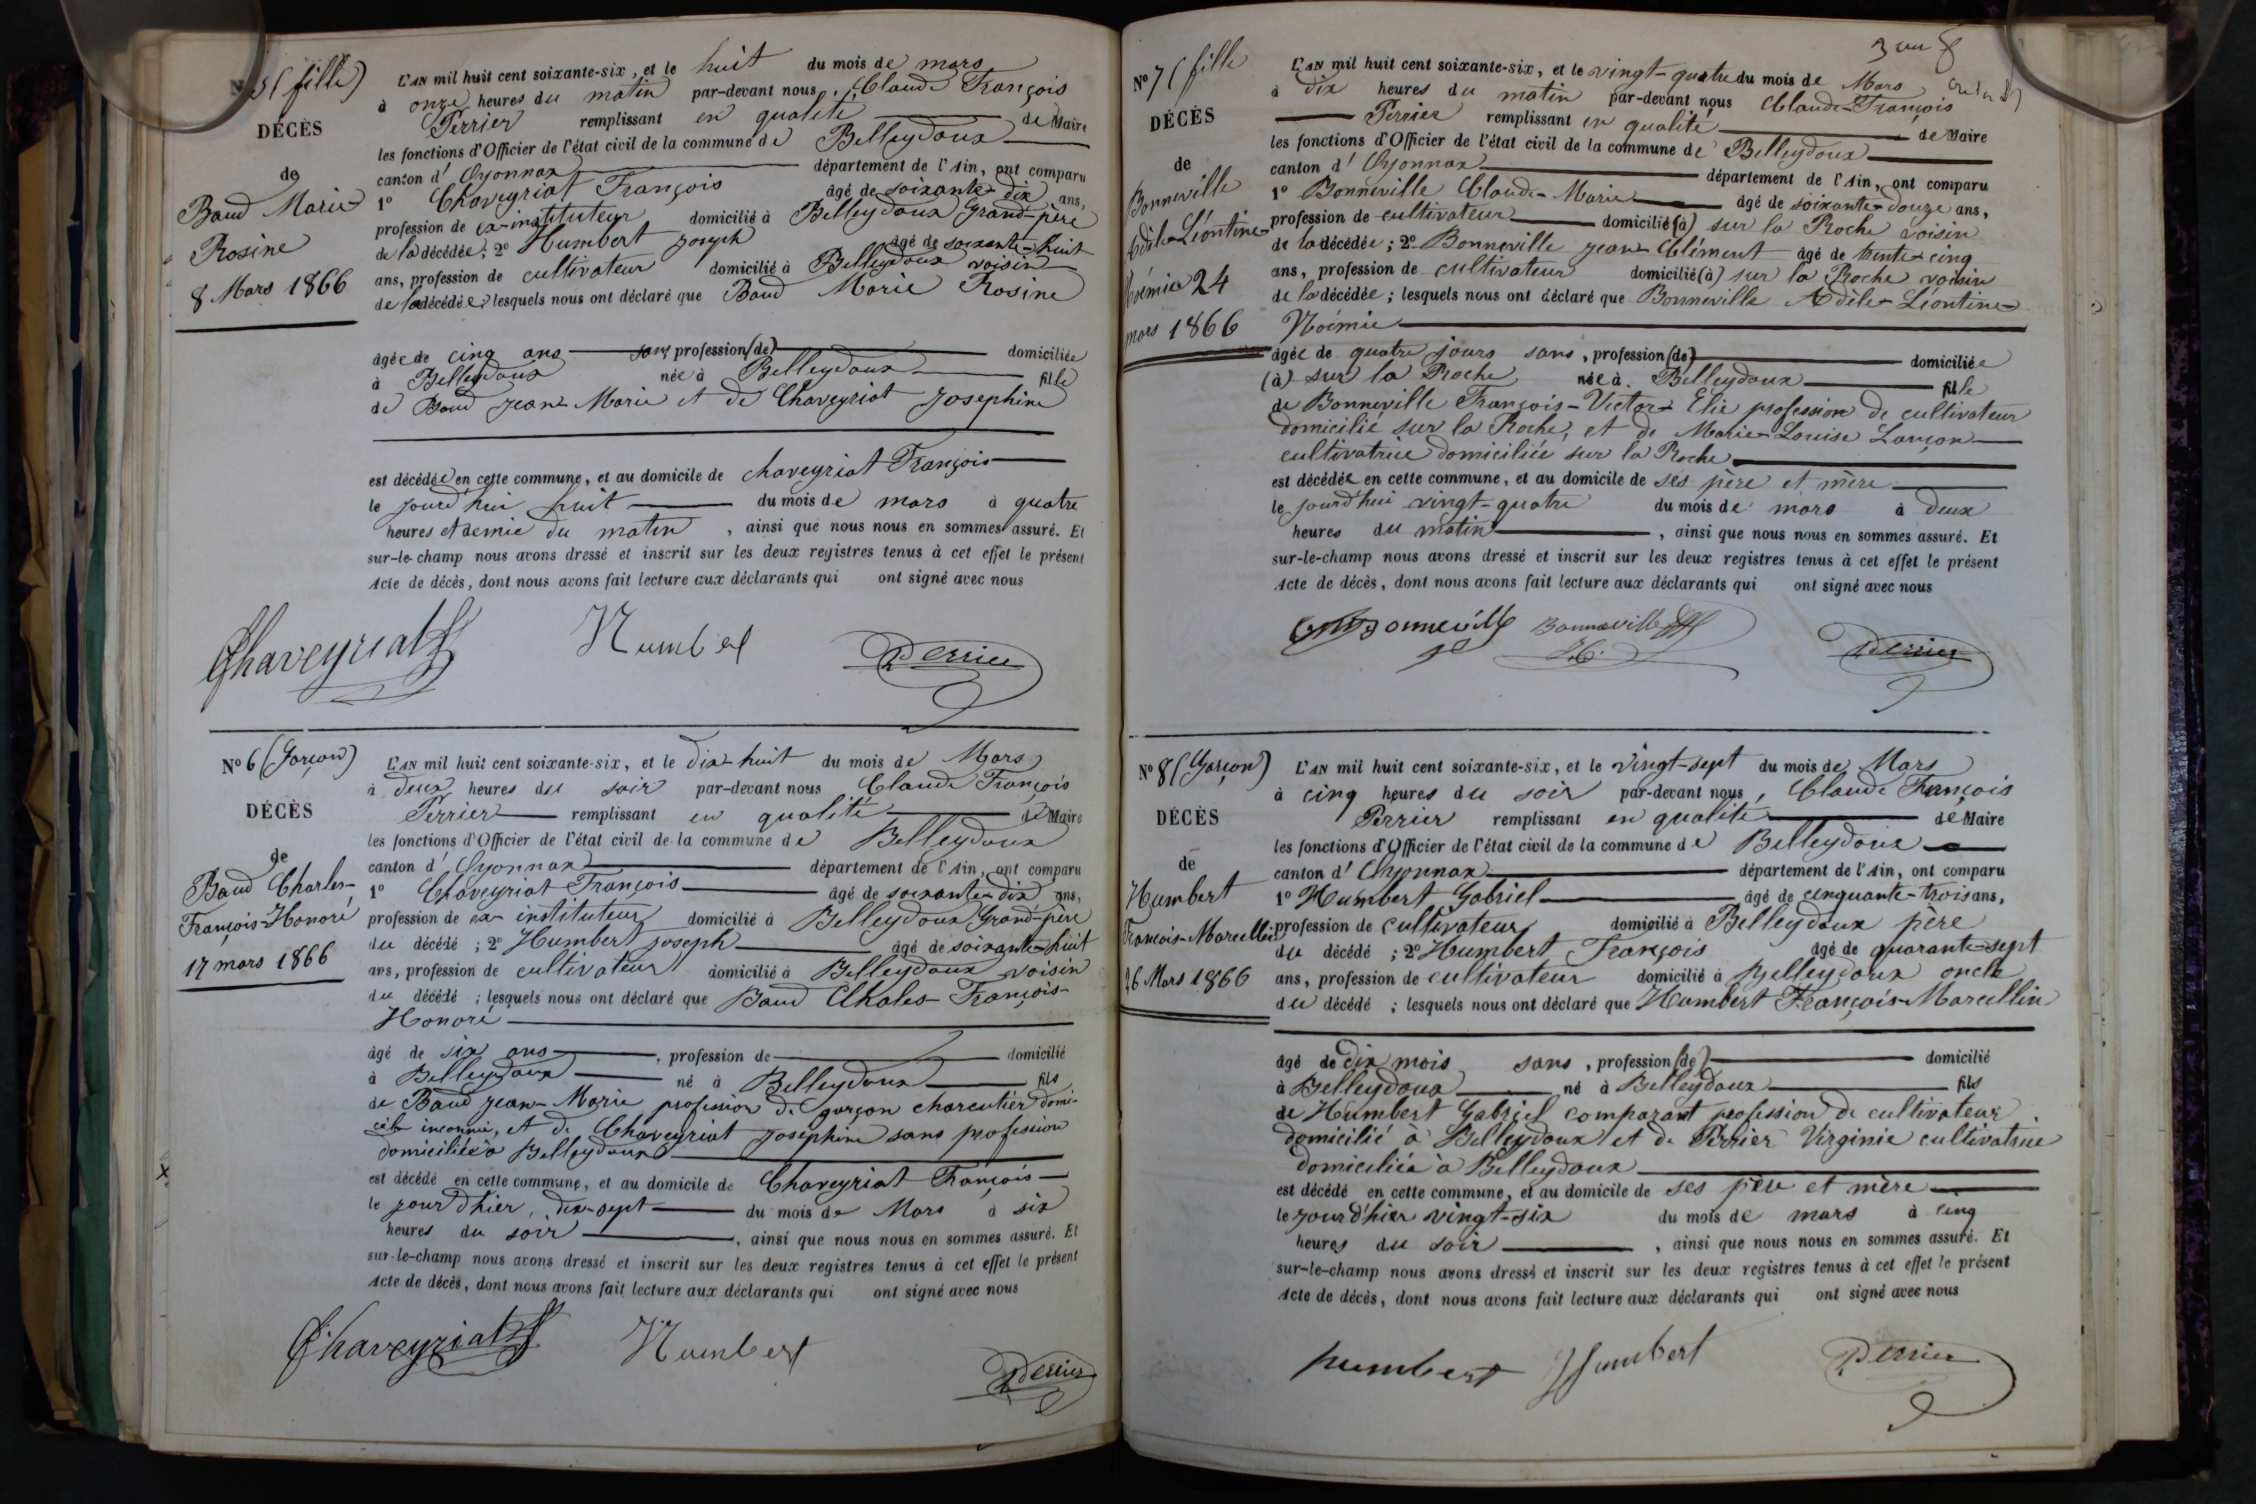 N° 5 (fille)
DÉCÈS
de
Baud Marie
Rosine
8 Mars 1866
L'AN mil huit cent soixante-six, et le huit du mois de mars
à onze heures du matin par-devant nous, Claude François
Perrier remplissant en qualité de Maire
les fonctions d'Officier de l'état civil de la commune de Belleydoux
canton d'Oyonnax département de l'Ain, ont comparu
1° Chaveyriat François âgé de soixante-dix ans,
profession de ex-instituteur domicilié à Belleydoux Grand-père
de la décédée; 2° Humbert Joseph âgé de soixante-huit
ans, profession de cultivateur domicilié à Belleydoux voisin
de la décédée; lesquels nous ont déclaré que Baud Marie Rosine
âgée de cinq ans sans profession (de) domiciliée
à Belleydoux née à Belleydoux fille
de Baud Jean-Marie et de Chaveyriat Josephine
est décédée en cette commune, et au domicile de Chaveyriat François
le jourd'hui huit du mois de mars à quatre
heures et demie du matin, ainsi que nous nous en sommes assuré. Et
sur-le-champ nous avons dressé et inscrit sur les deux registres tenus à cet effet le présent
Acte de décès, dont nous avons fait lecture aux déclarants qui ont signé avec nous
Chaveyriat Humbert Perrier
N° 6 (Garçon)
DÉCÈS
de
Baud Charles-
François-Honoré
17 mars 1866
L'AN mil huit cent soixante-six, et le dix-huit du mois de Mars
à deux heures du soir par-devant nous Claude François
Perrier remplissant en qualité de Maire
les fonctions d'Officier de l'état civil de la commune de Belleydoux
canton d'Oyonnax département de l'Ain, ont comparu
1° Chaveyriat François âgé de soixante-dix ans,
profession de ex-instituteur domicilié à Belleydoux Grand-père
du décédé; 2° Humbert Joseph âgé de soixante-huit
ans, profession de cultivateur domicilié à Belleydoux voisin
du décédé; lesquels nous ont déclaré que Baud Chales-François-
Honoré
âgé de six ans, profession de domicilié
à Belleydoux né à Belleydoux fils
de Baud Jean-Marie profession de garçon charcutier domi-
cile inconnu, et de Chaveyriat Joséphine sans profession
domiciliée à Belleydoux
est décédé en cette commune, et au domicile de Chaveyriat François
le jour d'hier, dix-sept du mois de Mars à six
heures du soir, ainsi que nous nous en sommes assuré. Et
sur-le-champ nous avons dressé et inscrit sur les deux registres tenus à cet effet le présent
Acte de décès, dont nous avons fait lecture aux déclarants qui ont signé avec nous
Chaveyriat Humbert Perrier
N° 7 (fille
DÉCÈS
de
Bonneville
Adèle-Léontine-
Noémie 24
mars 1866
L'AN mil huit cent soixante-six, et le vingt-quatre du mois de Mars
à dix heures du matin par-devant nous Claude-François
Perrier remplissant en qualité de Maire
les fonctions d'Officier de l'état civil de la commune de Belleydoux
canton d'Oyonnax département de l'Ain, ont comparu
1° Bonneville Claude-Marie âgé de soixante-douze ans,
profession de cultivateur domicilié (à) sur la Roche voisin
de la décédée; 2° Bonneville Jean-Clément âgé de trente-cinq
ans, profession de cultivateur domicilié (à) sur la Roche voisin
de la décédée; lesquels nous ont déclaré que Bonneville Adèle-Léontine-
Noémie
âgée de quatre jours sans, profession (de) domiciliée
(à) sur la Roche née à Belleydoux fille
de Bonneville François-Victor-Élie profession de cultivateur
domicilié sur la Roche, et de Marie-Louise Lançon
cultivatrice domiciliée sur la Roche
est décédée en cette commune, et au domicile de ses père et mère
le jourd'hui vingt-quatre du mois de mars à deux
heures du matin, ainsi que nous nous en sommes assuré. Et
sur-le-champ nous avons dressé et inscrit sur les deux registres tenus à cet effet le présent
Acte de décès, dont nous avons fait lecture aux déclarants qui ont signé avec nous
Bonneville Bonneville Perrier
N° 8 (Garçon)
DÉCÈS
de
Humbert
François-Marcellin
26 Mars 1866
L'AN mil huit cent soixante-six, et le vingt-sept du mois de Mars
à cinq heures du soir par-devant nous, Claude François
Perrier remplissant en qualité de Maire
les fonctions d'Officier de l'état civil de la commune de Belleydoux
canton d'Oyonnax département de l'Ain, ont comparu
1° Humbert Gabriel âgé de cinquante-trois ans,
profession de cultivateur domicilié à Belleydoux père
du décédé; 2° Humbert François âgé de quarante-sept
ans, profession de cultivateur domicilié à Belleydoux oncle
du décédé; lesquels nous ont déclaré que Humbert François-Marcellin
âgé de dix mois sans, profession (de) domicilié
à Belleydoux né à Belleydoux fils
de Humbert Gabriel comparant profession de cultivateur
domicilié à Belleydoux et de Perrier Virginie cultivatrice
domiciliée à Belleydoux
est décédé en cette commune, et au domicile de ses père et mère
le jour d'hier vingt-six du mois de mars à cinq
heures du soir, ainsi que nous nous en sommes assuré. Et
sur-le-champ nous avons dressé et inscrit sur les deux registres tenus à cet effet le présent
Acte de décès, dont nous avons fait lecture aux déclarants qui ont signé avec nous
humbert Humbert Perrier